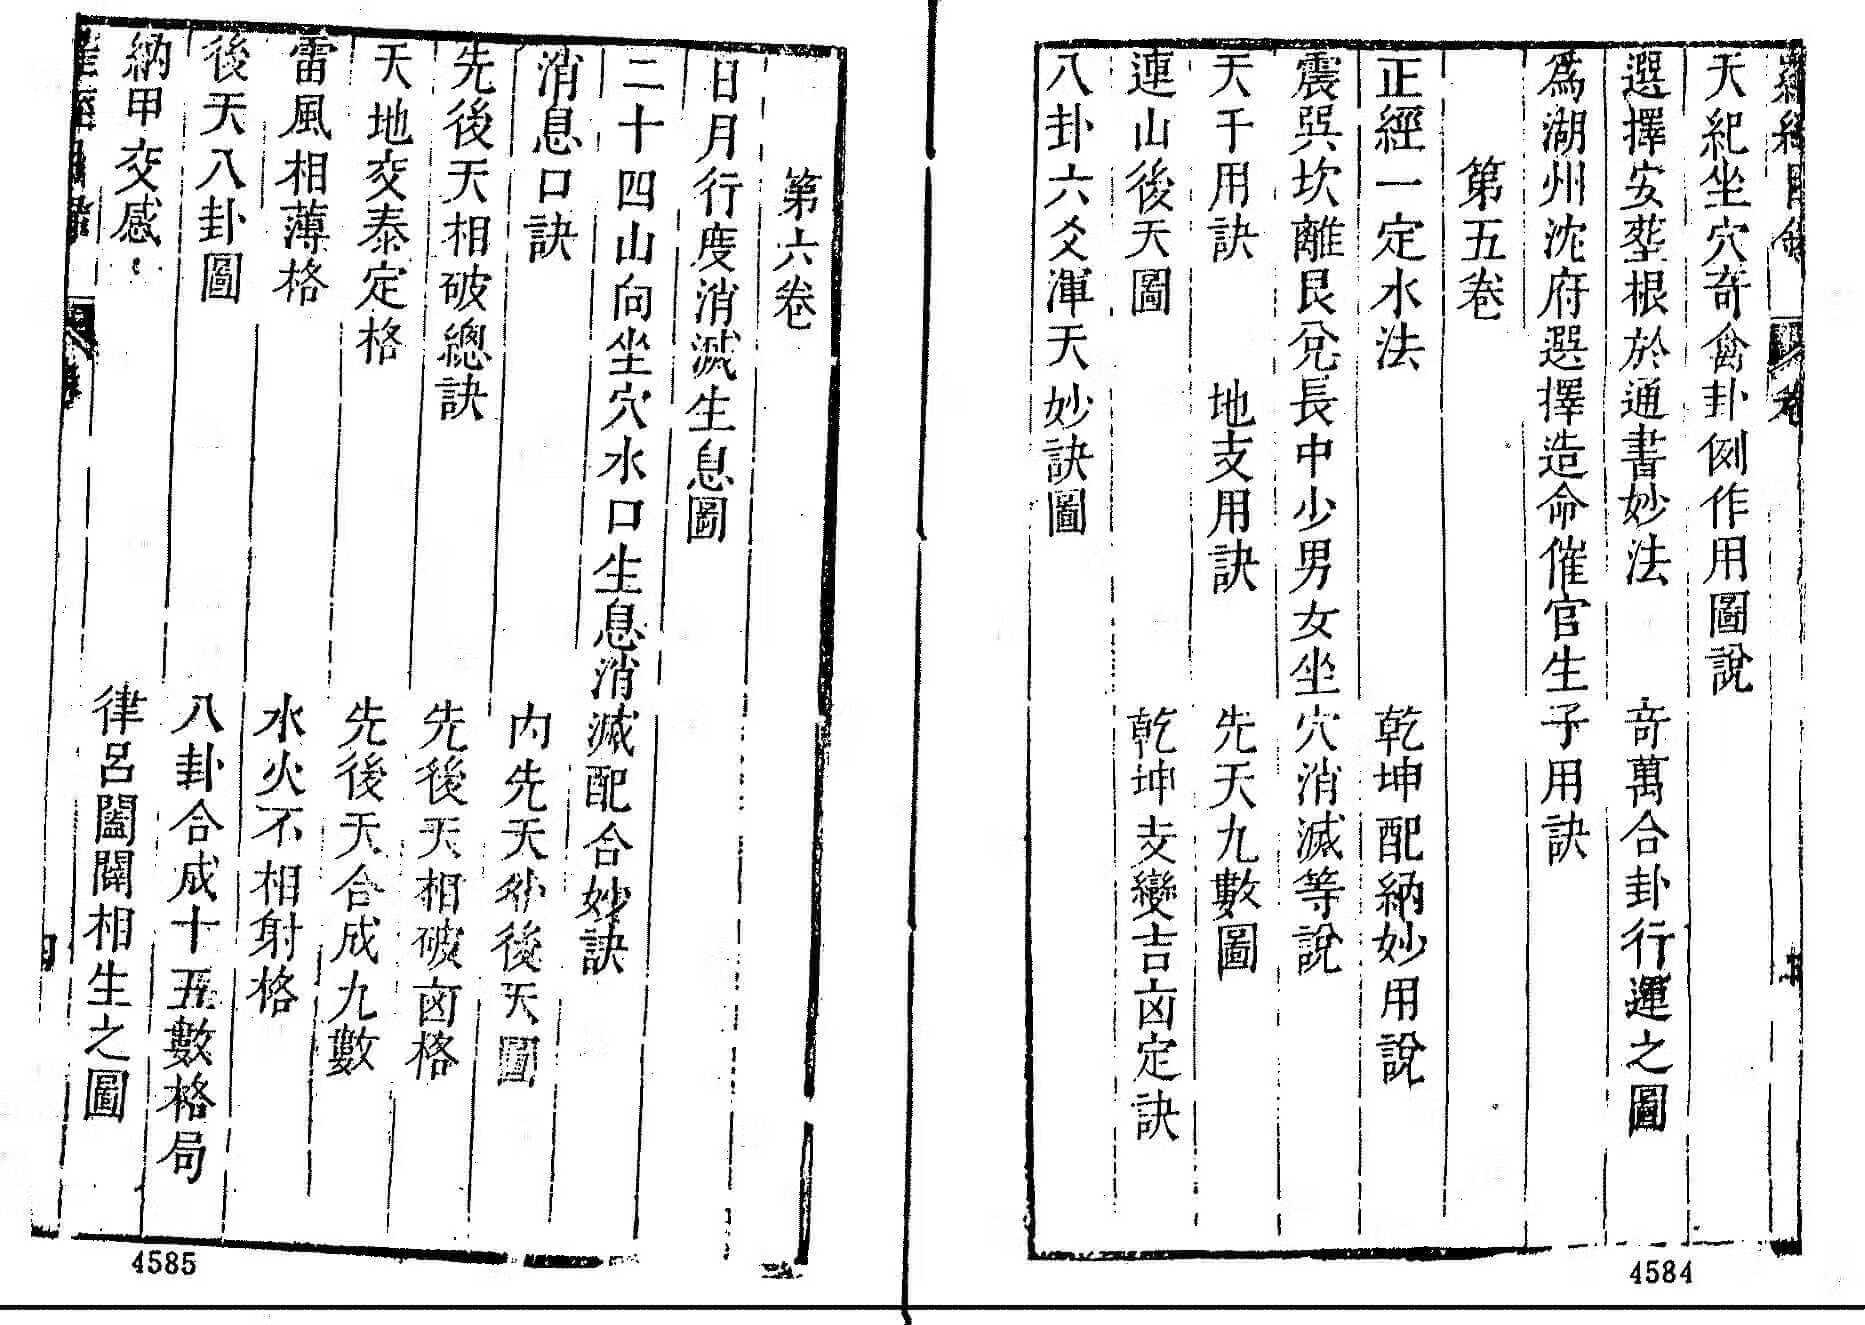 天紀坐穴奇禽卦例作用圖說
選擇安塟根於通書妙法 奇萬合卦行運之圖
爲湖州沈府選擇造命催官生子用訣
第五卷
正經一定水法 乾坤配納妙用說
震巽坎離艮兌長中少男女坐穴消滅等說
天干用訣 地支用訣 先天九數圖
連山後天圖 乾坤爻變吉凶定訣
八卦六爻渾天妙訣圖
4584
第六卷
日月行度消滅生息圖
二十四山向坐穴水口生息消滅配合妙訣
消息口訣 內先天外後天圖
先後天相破總訣 先後天相破凶格
天地交泰定格 先後天合成九數
雷風相薄格 水火不相射格
後天八卦圖 八卦合成十五數格局
納甲交感 律呂闔闢相生之圖
4585